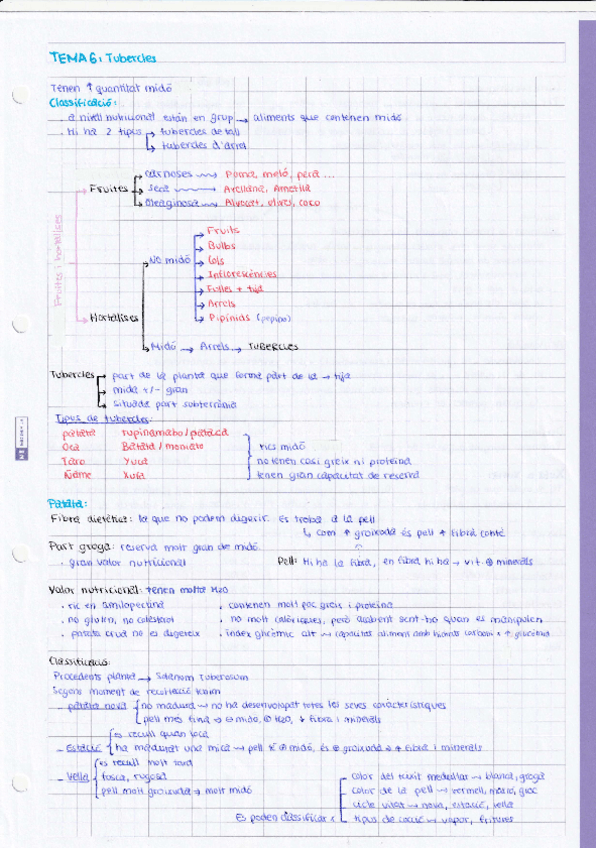 TEMA 6: Tubercles
Tenen ↑ quantitat midó
Classificació:
. a nivell nutricional estàn en grup → aliments que contenen midó
. Hi ha 2 tipus → tubercles de tall
→ tubercles d'arrel
Fruites i hortalisses
Fruites
carnoses → Poma, meló, pera ...
seca → Avellana, Ametlla
Oleaginosa → Alvocat, olives, coco
Hortalisses
No midó
Fruits
Bulbs
Cols
Inflorescències
Fulles + tija
Arrels
Pipínids (pepino)
Midó → Arrels → TUBERCLES
Tubercles
part de la planta que forma part de la → tija
mida +/- gran
situada part subterrània
Tipus de tubercles:
patata tupinambo/pataca
Oca Batata/moniato
Taro Yuca
Ñame Xufa
rics midó
no tenen casi greix ni proteïna
tenen gran capacitat de reserva
Patata:
Fibra dietètica: la que no podem digerir. Es troba a la pell
↳ com + groixuda és pell + fibra conté
Part groga: reserva molt gran de midó
. gran valor nutricional
Pell: Hi ha la fibra, en fibra hi ha → vit. minerals
Valor nutricional: tenen molta H2O
. ric en amilopectina
. no gluten, no colesterol
. patata crua no es digereix
. contenen molt poc greix i proteïna
. no molt calòriques, però acaben sent-ho quan es manipulen
. índex glicèmic alt → capacitat aliment amb hidrats carboni x ↑ glucèmia
Classificació:
Procedents planta → Solanum Tuberosum
Segons moment de recol·lecció tenim
- patata nova
no madura → no ha desenvolupat totes les seves característiques
pell més fina → ⊖ midó, ⊕ H2O, ↓ fibra i minerals
- Estació
es recull quan toca
ha madurat una mica → pell ⊕ midó, és ⊕ groixuda → + fibra i minerals
- Vella
es recull molt tard
fosca, rugosa
pell molt groixuda → molt midó
Es poden classificar x
color del teixit medul·lar → blanca, groga
color de la pell → vermell, marró, groc
cicle vital → nova, estació, vella
tipus de cocció → vapor, fritures